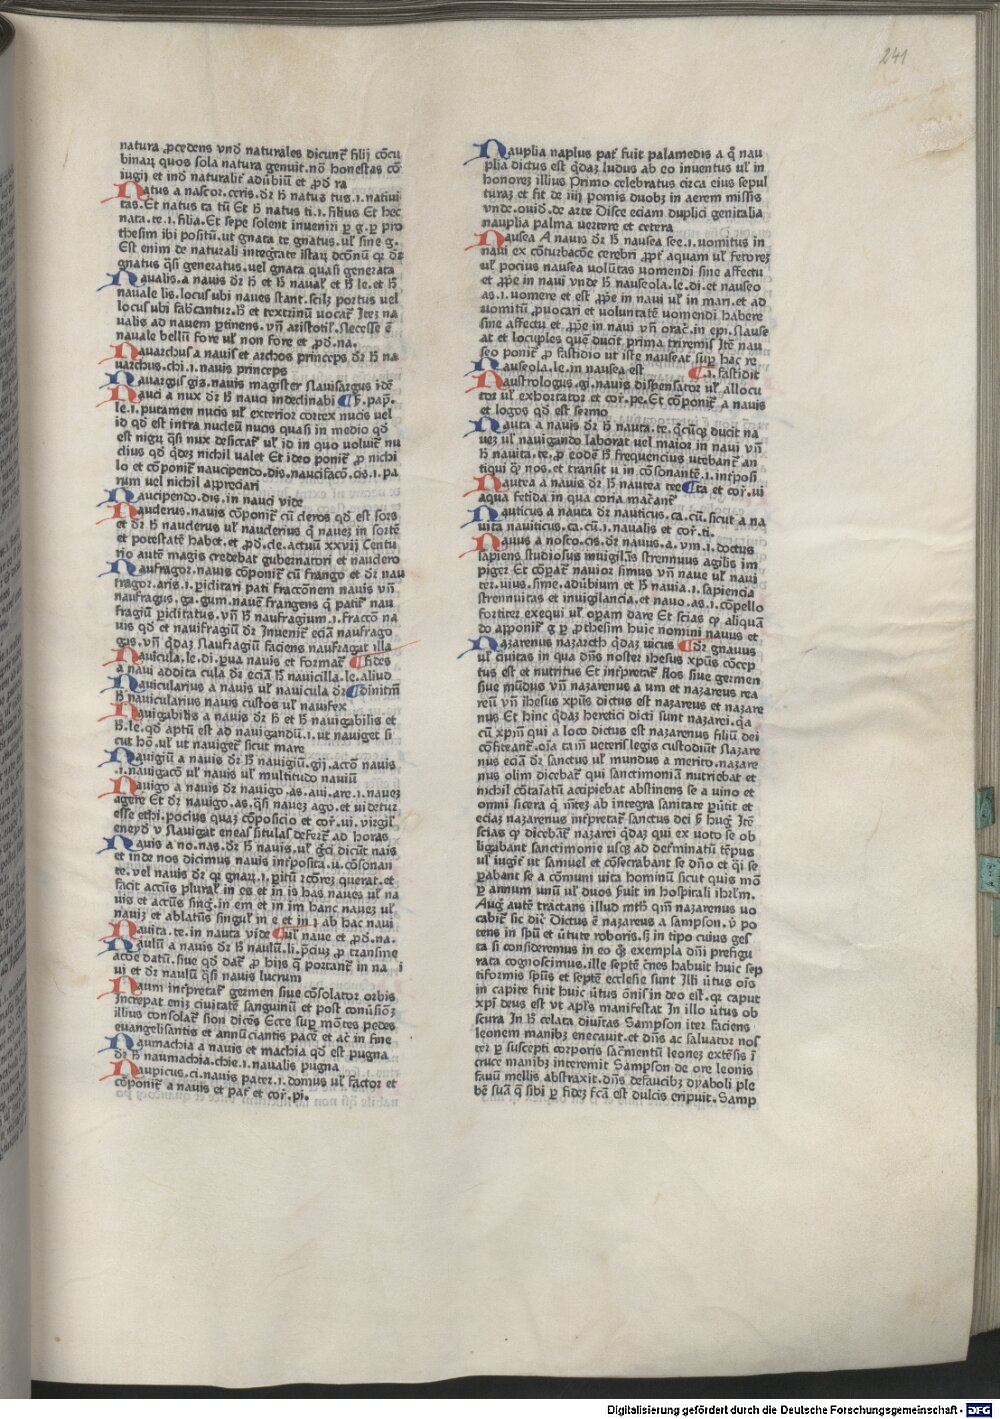 241
natura ꝓcedens vnđ naturales dicunt̃ filij cõcu
binarꝝ quos sola natura genuit. nõ honestas cõ
iugij et inđ naturalit̃ aduĩbiũ et ꝓđ ra
Natus a nascor. ceris. dr̃ h̃ natus tus .i. natiui
tas. Et natus ta tũ Et h̃ natus ti .i. filius Et hec
nata. te .i. filia. Et sepe solent inueniri ꝑ g. ꝑ pro
thesim ibi positũ. ut gnata te gnatus. ul̃ sine g.
Est enim de naturali integr̃ate istarꝝ dcõnũ qr̃ dr̃
gnatus q̃si generatus. uel gnata quasi generata
Naualis. a nauis dr̃ h̃ et h̃ naual̃ et h̃ le. et h̃
nauale lis. locus ubi naues stant. scilꝫ portus uel
locus ubi fab̃cantur. h̃ et textrinũ uocat̃ Iteꝫ na
ualis ad nauem ꝑtinens. vñ aristotil̃. Necesse ẽ
nauale bellũ fore ul̃ non fore et ꝓđ. na.
Nauarchus a nauis et archos princeps dr̃ h̃ na
uarchus. chi .i. nauis princeps
Nauargus gis. nauis magister Nauisargus idẽ
Nauci a nux dr̃ h̃ nauci indeclinabi ¶ F. pap̃.
le .i. putamen nucis ul̃ exterior cortex nucis uel
id qđ est intra nucleũ nucis quasi in medio qđ
est nigrꝝ q̃si nux desiccat̃ ul̃ id in quo uoluit̃ nu
cleus qđ q̃dẽꝫ nichil ualet Et ideo ponit̃ ꝓ nichi
lo et cõponit̃ naucipendo. dis. naucifacõ. cis .i. pa
rum uel nichil appreciari
Naucipendo. dis. in nauci vide
Nauderus. nauis cõponit̃ cũ cleros qđ est sors
et dr̃ h̃ nauderus ul̃ nauderius q̃ nauez in sortẽ
et potestatẽ habet. et ꝓđ. de. actuũ xxvij Centu
rio autẽ magis credebat gubernatori et naudero
Naufragor. nauis cõponit̃ cũ frango et dr̃ nau
fragor. aris .i. ꝑiditari pati fracconem nauis vñ
naufragus. ga. gum. nauẽ frangens q̃ patit̃ nau
fragiũ ꝑiditatus. vñ h̃ naufragium .i. fraccõ na
uis qđ et nauifragiũ dr̃ Inuenit̃ eciã naufrago
gas. vñ q̃daꝫ Naufragiũ faciens naufragat illa
Nauicula. le. di. ꝑua nauis et format̃ ¶ fides
a naui addita cula dr̃ eciã h̃ nauicilla. le. aliud
Nauicularius a nauis ul̃ nauicula dr̃ ¶ dinitm̃
h̃ nauicularius nauis custos ul̃ nauifex
Nauigabilis a nauis dr̃ h̃ et h̃ nauigabilis et
h̃. le. qđ aptũ est ad nauigandũ .i. ut nauiget si
cut hõ. ul̃ ut nauiget̃ sicut mare
Nauigiũ a nauis dr̃ h̃ nauigiũ. gij. actõ nauis
.i. nauigacõ ul̃ nauis ul̃ multitudo nauiũ
Nauigo a nauis dr̃ nauigo. as. aui. are .i. nauez
agere Et dr̃ nauigo. as. q̃si nauez ago. et uidetur
esse ethi. pocius quaꝫ cõposicio et cor̃. ui. virgil̃
eneyđ v Nauigat eneas situlas defert̃ ad horas
Nauis a no. nas. dr̃ h̃ nauis. ul̃ g̃ci dicũt nais
et inde nos dicimus nauis int̃posita. u. cõsonan
te. vel nauis dr̃ qr̃ gnarꝝ .i. ꝑitũ rc̃orez querat. et
facit accũs plural̃ in es et in is has naues ul̃ na
uis et accũs sing̃. in em et in im hanc nauez ul̃
nauiz et ablatũs singul̃ in e et in i ab hac naui
Nauita. te. in nauta vide ¶ uil̃ naue et ꝓđ. na.
Naulũ a nauis dr̃ h̃ naulũ. li. p̃cius ꝓ transme
acõe datũ. siue qđ dat̃ ꝓ hijs q̃ portant̃ in na i
ui et dr̃ naulũ q̃si nauis lucrum
Naum int̃pretat̃ germen siue cõsolator orbis
Increpat eniꝫ ciuitatẽ sanguinũ et post conu̾siõez
illius consolat̃ sion dicẽs Ecce suꝑ mõtes pedes
euangelisantis et annũciantis pacẽ et ac̃ in fine
Naumachia a nauis et machia qđ est pugna
dr̃ h̃ naumachia. chie .i. naualis pugna
Naupicus. ci. nauis pater .i. domus ul̃ factor et
cõponit̃ a nauis et pat̃ et cor̃. pi.
Nauplia naplus pat̃ fuit palamedis a q̃ nau
plia dictus est q̃daꝫ ludus ab eo inuentus ul̃ in
honorez illius Primo celebratus circa eius sepul
turaꝫ et fit de iiij pomis duobꝫ in aerem missis
vnde. ouiđ. de arte Disce eciam duplici genitalia
nauplia palma vertere et cetera
Nausea A nauis dr̃ h̃ nausea see .i. uomitus in
naui ex cõturbacõe cerebri ꝓpt̃ aquam ul̃ fetorez
ul̃ pocius nausea volũtas uomendi sine affectu
et ꝓp̃e in naui vnde h̃ nauseola. le. di. et nauseo
as .i. uomere et est ꝓp̃e in naui ul̃ in mari. et ad
uomitũ ꝓuocari et voluntatẽ uomendi habere
sine affectu et ꝓp̃e in naui vñ orac̃. in epi. Nause
at et locuples quẽ ducit prima triremis Itẽ nau
seo ponit̃ ꝓ fastidio ut iste nauseat suꝑ hac re
Nauseola. le. in nausea est ¶ .i. fastidit
Naustrologus. gi. nauis dispensator ul̃ allocu
tor ul̃ exhortator et cor̃. pe. Et cõponit̃ a nauis
et logos qđ est sermo
Nauta a nauis dr̃ h̃ nauta. te. q̃cũqꝫ ducit na
uez ul̃ nauigando laborat uel maior in naui vñ
h̃ nauita. te. ꝓ eodẽ h̃ frequencius utebant̃ an
tiqui q̃ nos. et transit u in cõsonantẽ .i. int̃posi
Nautea a nauis dr̃ h̃ nautea tee ¶ ta et cor̃. ui
aqua fetida in qua coria mac̃ant̃
Nauticus a nauta dr̃ nauticus. ca. cũ. sicut a na
uita nauiticus. ca. cũ .i. naualis et cor̃. ti.
Nauus a nosco. cis. dr̃ nauus. a. vm .i. doctus
sapiens studiosus inuigilãs strennuus agilis im
piger Et cõpat̃ nauior simus vñ naue ul̃ naui
ter. uius. sime. aduĩbium et h̃ nauia .i. sapiencia
strennuitas et inuigilancia. et nauo. as .i. cõpello
fortiter exequi ul̃ oꝑam dare Et scias qꝫ aliquã
do apponit̃ g ꝑ ꝓthesim huic nomini nauus et
Nazarenus nazareth q̃daꝫ uicus ¶ dr̃ gnauus
ul̃ ciuitas in qua dñs noster ihesus xp̃us cõcep
tus est et nutritus Et int̃pretat̃ flos siue germen
siue mũdus vñ nazarenus a um et nazareus rea
reũ vñ ihesus xp̃us dictus est nazareus et nazare
nus Et hinc q̃daꝫ heretici dicti sunt nazarei. q̃a
cũ xp̃m qui a loco dictus est nazarenus filiũ dei
cõfiteant̃. oĩa tam̃ ueteris legis custodiũt Nazare
nus eciã dr̃ sanctus ul̃ mundus a merito. nazare
nus olim dicebat̃ qui sanctimoniã nutriebat et
nichil cõtaiatũ accipiebat abstinens se a uino et
omni sicera q̃ mẽtez ab integra sanitate ꝑũtit et
eciaꝫ nazarenus int̃pretat̃ sanctus dei ꝑ hug̃ Itẽ
scias qꝫ dicebãt̃ nazarei q̃daꝫ qui ex voto se ob
ligabant sanctimonie usqꝫ ad det̃minatũ tẽpus
ul̃ iugit̃ ut samuel et cõsecrabant se dño et q̃i se
ꝑabant se a cõmuni uita hominũ sicut quis mo᷒
ꝑ annum unũ ul̃ duos s̃uit in hospitali ihr̃lm̃.
Aug̃ autẽ tractans illud mth̃ qm̃ nazarenus uo
cabit̃ sic dic̃ Dictus ẽ nazareus a sampson. v̾ po
tens in sp̃u et u̾tute roboris. sꝫ in tipo cuius ges
ta si consideremus in eo q̃ꝫ exempla dñi prefigu
rata cognoscimus. ille septẽ c̃nes habuit huic sep
tiformis sp̃us et septẽ ecclesie sunt Illi u̾tus oĩs
in capite fuit huic u̾tus õnis in deo est. qr̃ caput
xp̃i deus est vt apl̃s manifestat In illo u̾tus ob
scura In h̃ celata diuĩtas Sampson iter faciens
leonem manibꝫ enecauit. et dñs ac saluator nos
ter ꝑ suscepti corporis sac̃mentũ leonez extẽsis ĩ
cruce manibꝫ interemit Sampson de ore leonis
fauũ mellis abstraxit. dñs defaucibꝫ dyaboli ple
bẽ suã q̃ sibi ꝑ fidez fc̃a est dulcis eripuit. Samp
Digitalisierung gefördert durch die Deutsche Forschungsgemeinschaft - DFG